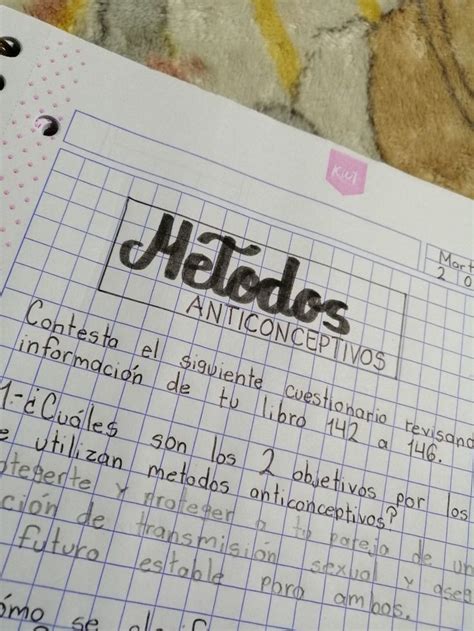 Kiut
Mart
2 0
Metodos
ANTICONCEPTIVOS
Contesta el siguiente cuestionario revisand
información de tu libro 142 a 146.
1.-¿Cuáles son los 2 objetivos por los
e utilizan metodos anticonceptivos?
otegerte y proteger a tu pareja de un
ción de transmisión sexual y aseg
futuro estable para ambos.
ómo se